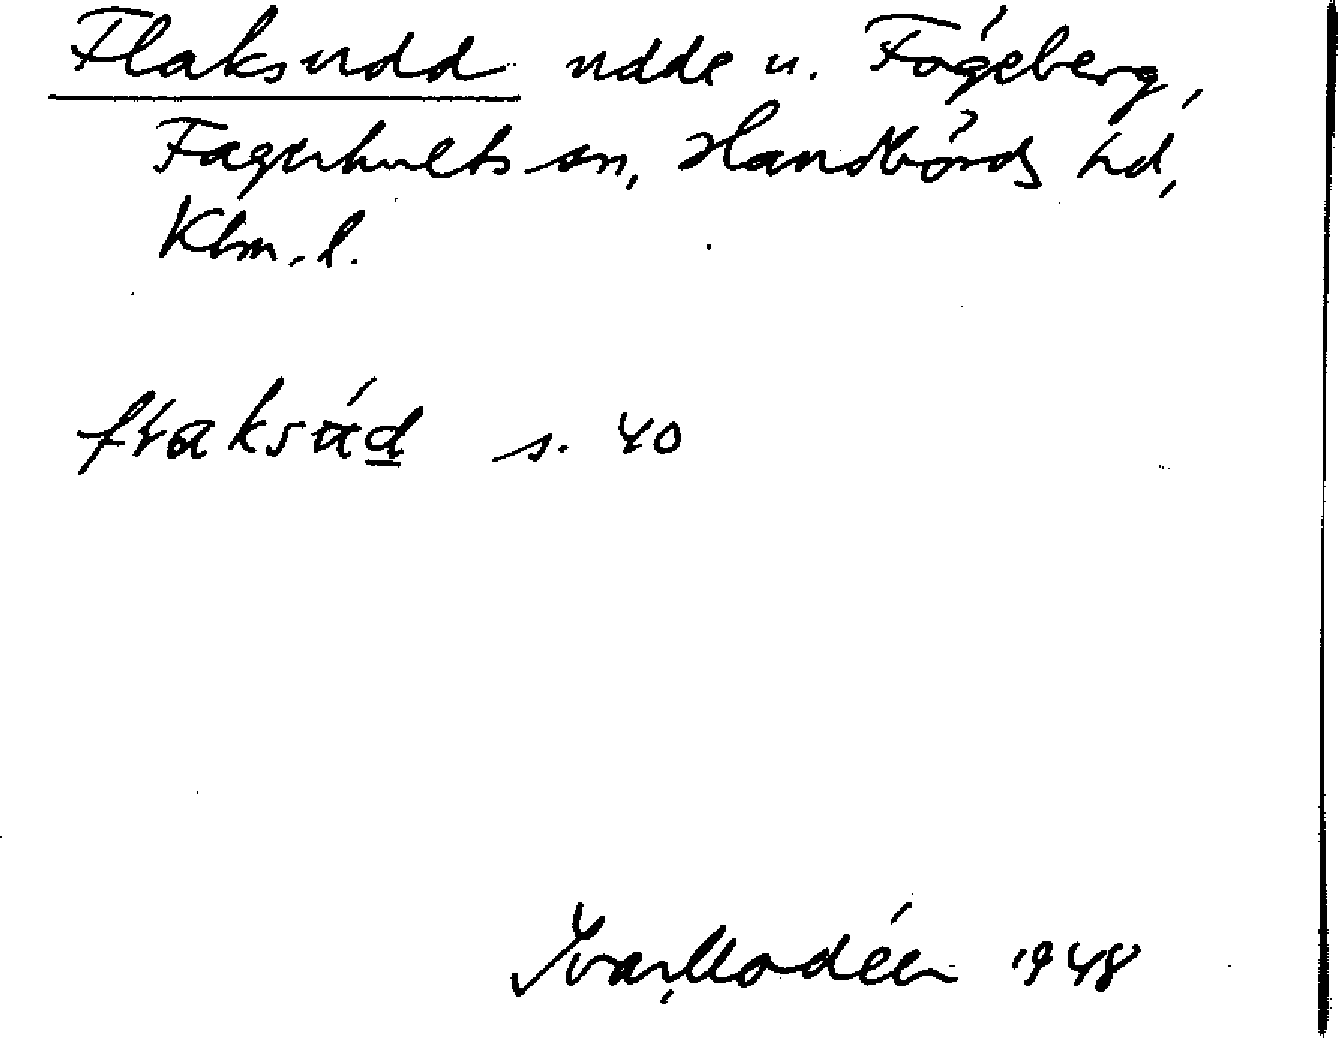 Flaksudd udde u. Fågeberg,
Fagerhults sn, Handbörds hd,
Klm. l.
s. 40
Ivar Modéer 1948